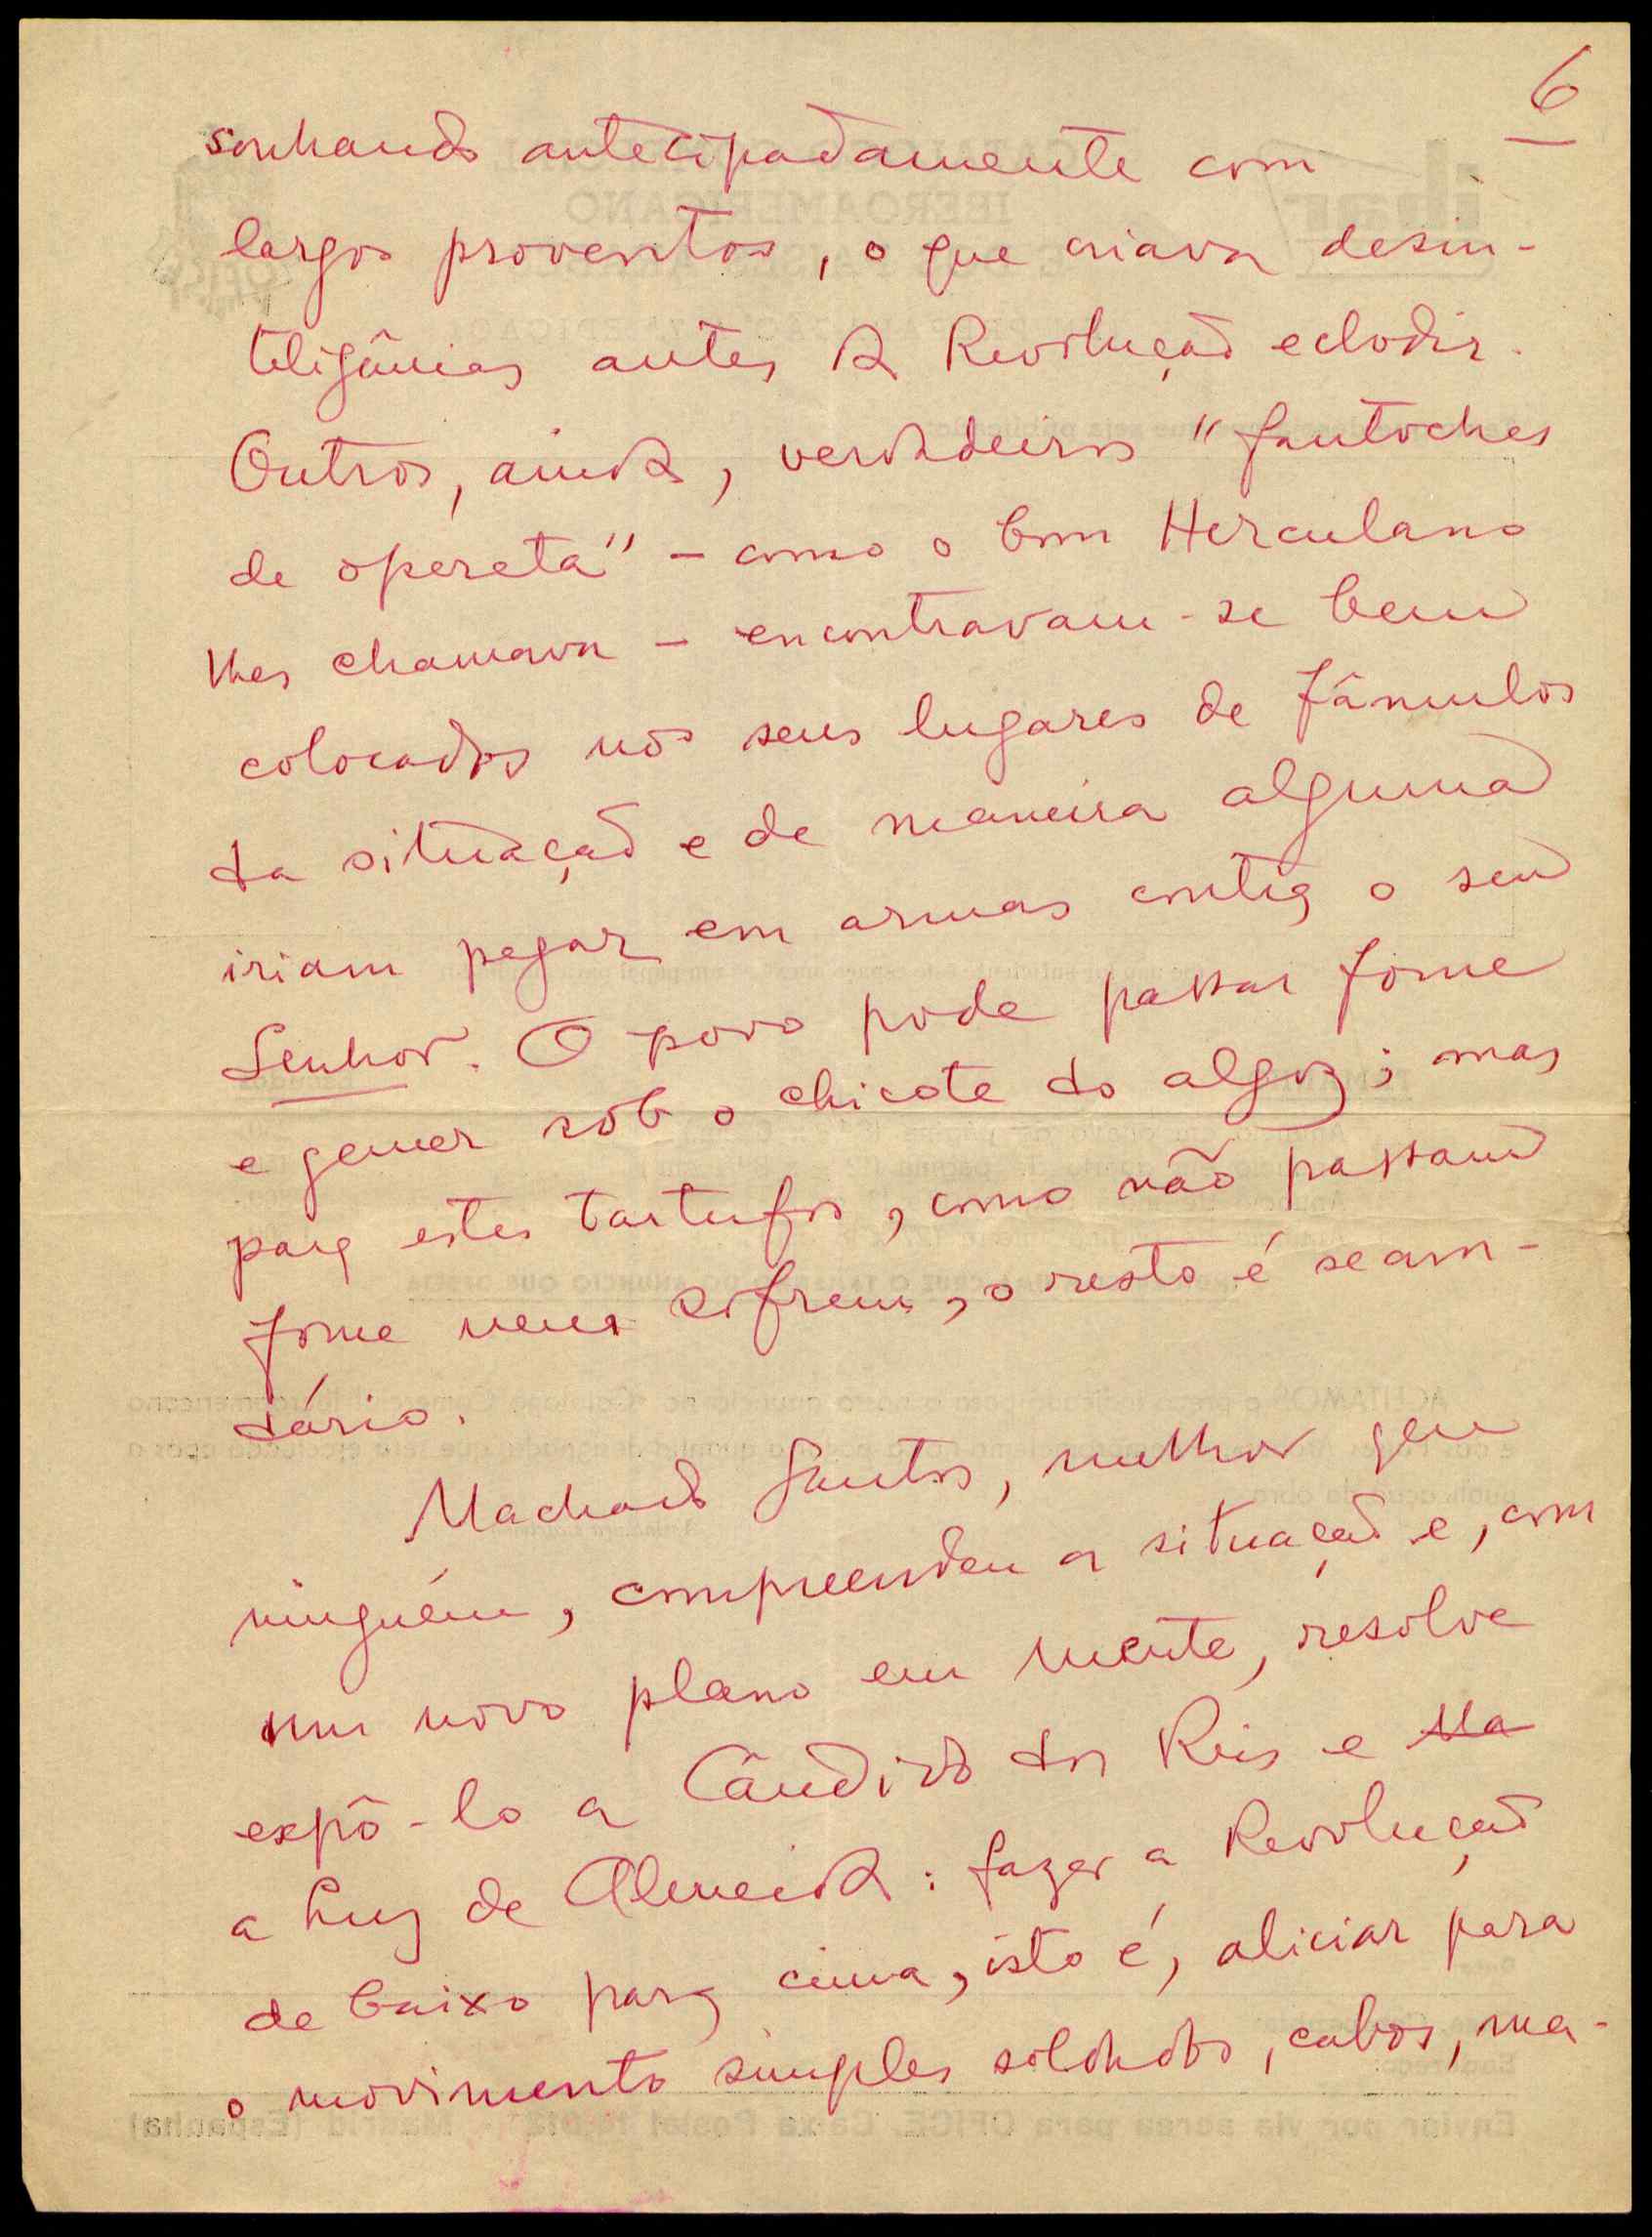 6
sonhando antecipadamente com
largos proventos, o que criava desin-
teligências antes da Revolução eclodir.
Outros, ainda, verdadeiros "fantoches
de opereta" - como o bom Herculano
lhes chamava - encontravam-se bem
colocados nos seus lugares de fâmulos
da situação e de maneira alguma
iriam pegar em armas contra o seu
Senhor. O povo pode passar fome
e gemer sob o chicote do algoz; mas
para estes tartufos, como não passam
fome nem sofrem, o resto é seam-
dário.
Machado Santos, melhor que
ninguém, compreendeu a situação e, com
um novo plano em mente, resolve
expô-lo a Cândido dos Reis e Ma
a Luz de Almeida: fazer a Revolução
de baixo para cima, isto é, aliciar para
o movimento simples soldados, cabos, ma-
Enviar por via aerea para OFICE. Caixa Postal Madrid (Espanha)